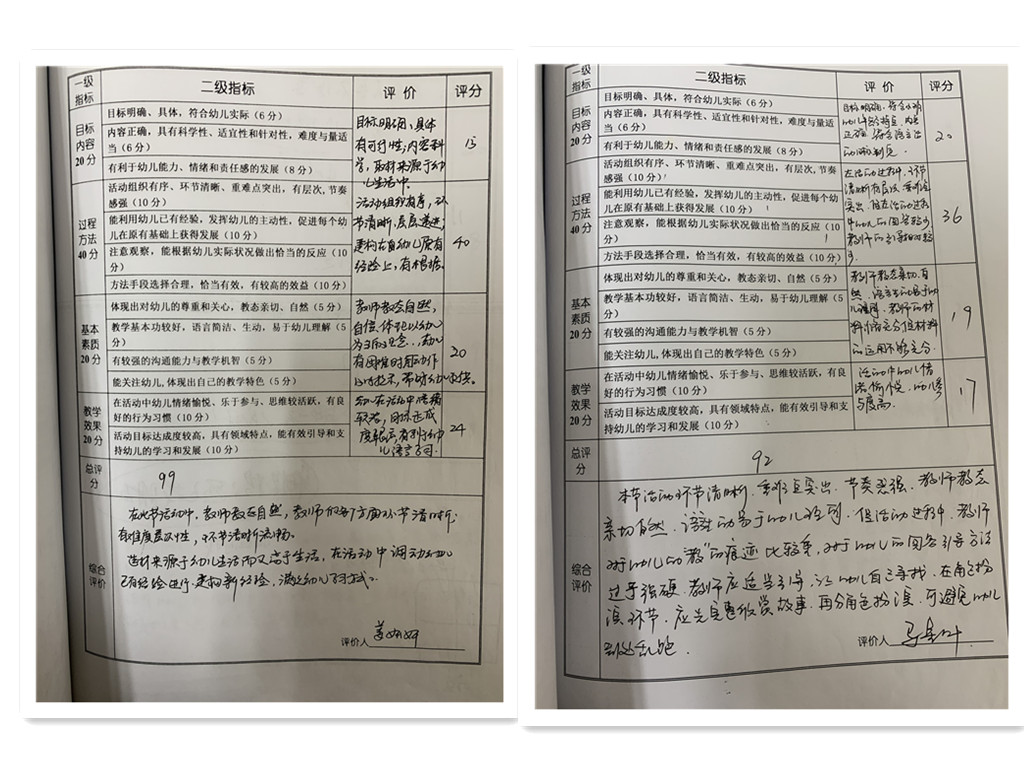 一级指标
二级指标
评 价
评分
目标内容20分
目标明确、具体，符合幼儿实际（6 分）
内容正确，具有科学性、适宜性和针对性，难度与量适
当（6 分）
有利于幼儿能力、情绪和责任感的发展（8 分）
目标明确、具体
有可行性，内容科
学，取材来源于幼
儿生活中。
过程方法40分
活动组织有序、环节清晰、重难点突出，有层次，节奏
感强（10 分）
能利用幼儿已有经验，发挥幼儿的主动性，促进每个幼
儿在原有基础上获得发展（10 分）
注意观察，能根据幼儿实际状况做出恰当的反应（10
分）
方法手段选择合理，恰当有效，有较高的效益（10 分）
活动组织有序，环
节清晰，层层递进，
建构在幼儿原有
经验上，有根据。
40
基本素质20分
体现出对幼儿的尊重和关心，教态亲切、自然（5 分）
教学基本功较好，语言简洁、生动，易于幼儿理解（5
分）
有较强的沟通能力与教学机智（5 分）
能关注幼儿，体现出自己的教学特色（5 分）
教师教态自然，
自信，体现以幼儿
20
教学效果20分
在活动中幼儿情绪愉悦、乐于参与、思维较活跃，有良
好的行为习惯（10 分）
活动目标达成度较高，具有领域特点，能有效引导和支
持幼儿的学习和发展（10 分）
24
总评分
99
综合评价
在此节活动中，教师教态自然，教师的各方面环节清晰，
有难度层次性，环节清晰流畅。
选材来源于幼儿生活而又高于生活，在活动中调动幼儿
已有经验进行建构新经验，满足幼儿学习方式。
评价人
一级指标
二级指标
评 价
评分
目标内容20分
目标明确、具体，符合幼儿实际（6 分）
内容正确，具有科学性、适宜性和针对性，难度与量适
当（6 分）
有利于幼儿能力、情绪和责任感的发展（8 分）
20
过程方法40分
活动组织有序、环节清晰、重难点突出，有层次，节奏
感强（10 分）
能利用幼儿已有经验，发挥幼儿的主动性，促进每个幼
儿在原有基础上获得发展（10 分）
注意观察，能根据幼儿实际状况做出恰当的反应（10
分）
方法手段选择合理，恰当有效，有较高的效益（10 分）
在活动过程中，环节
清晰有层次，重难点
突出，但在活动过程
36
基本素质20分
体现出对幼儿的尊重和关心，教态亲切、自然（5 分）
教学基本功较好，语言简洁、生动，易于幼儿理解（5
分）
有较强的沟通能力与教学机智（5 分）
能关注幼儿，体现出自己的教学特色（5 分）
教师教态亲切、自
然，语言生动易于幼
儿理解，教师的材
料准备充分但材料
的运用不够充分。
19
教学效果20分
在活动中幼儿情绪愉悦、乐于参与、思维较活跃，有良
好的行为习惯（10 分）
活动目标达成度较高，具有领域特点，能有效引导和支
持幼儿的学习和发展（10 分）
活动中幼儿情
绪愉悦，幼儿参
与度高。
17
总评分
92
综合评价
本节活动环节清晰，重难点突出，节奏感强，教师教态
亲切自然，语言生动易于幼儿理解，但活动过程中，教师
对幼儿的“教”的痕迹比较重，对于幼儿的回答引导方法
过于强硬，教师应适当引导，让幼儿自己寻找，在角色扮
演环节，应先完整欣赏故事，再分角色扮演，可避免幼儿
到处乱跑。
评价人